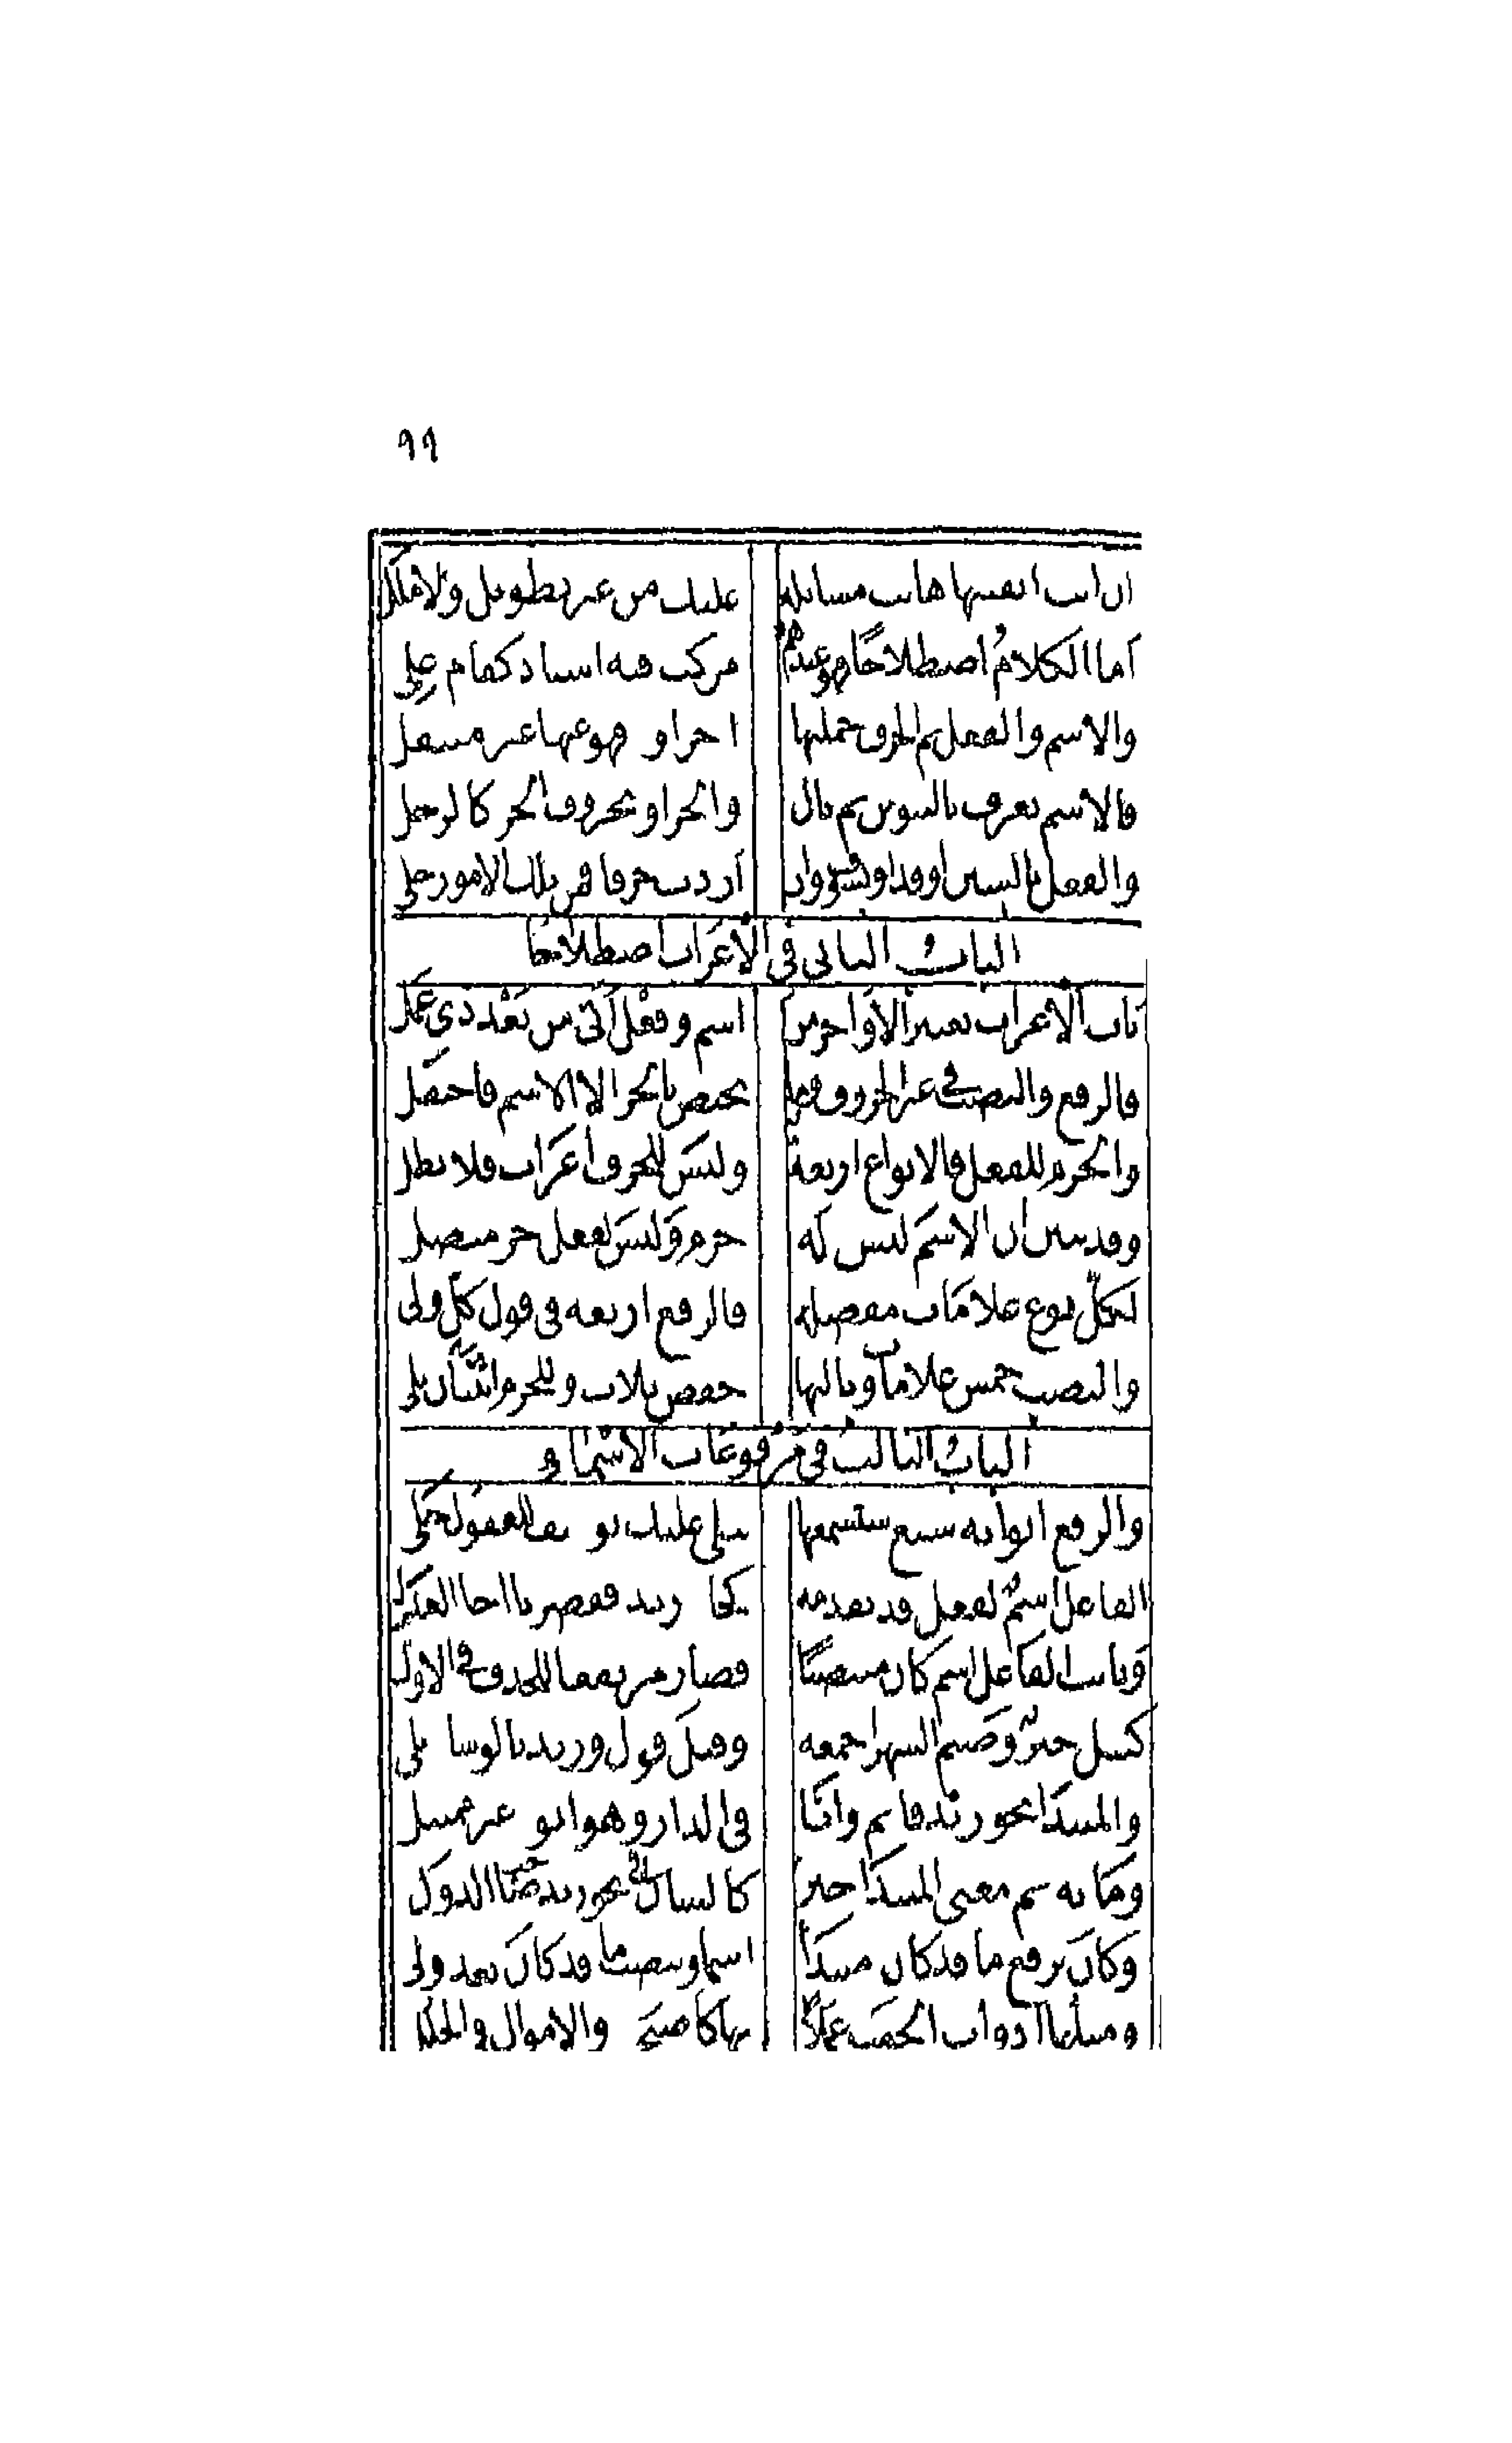 ٩٩
ان انت اتقنتها هانت مسائله عليك من غير تطويل ولا ملل
أما الكلامُ اصطلاحًا فهو عندهم مركب فيه اسناد كقام علي
والاسم والفعل ثم الحرف جملتها اجزاوه وهو عنها غير منتقل
فالاسم يعرف بالتنوين ثم بال والجر او بحروف الجر كالرجل
والفعل بالسين او قد او بسوف وان أردت حرفا فمن تلك الامور خلي
البابُ الثاني في الاعراب اصطلاحا
باب الاعراب تغيير الأواخر من اسم وفعل أتى من بَعْد ذي عَمل
فالرفع والنصب في غير الحروف وما يختص بالجر الا الاسم فاحتفل
والجزم للفعل فالانواع اربعة وليسَ للحرف أعرَاب فلا تطل
وقد تبين ان الاسمَ ليس لَه جزم وَليسَ لفعل جر متصل
لكلّ نوع علامَات مفصلة فالرفع اربعه في قول كلّ ولي
والنصب خمس علامات وثالثها خفض ثلاث وللجزم اثنتان تلي
البابُ الثالثُ في مَرفوعَات الأسْمَاء
والرفع ابوابه سبع ستسمعها تتلى عليك للعقول جلي
الفاعل اسمٌ لفعل قد تقدمه كجا زيد فقصر يا اخا العذل
وَنائب الفاعل اسم كان منتصبًا فصار مرتفعا للحذف في الاول
كنيل خيرٌ وَصيم الشهر اجمعه وقيلَ قول وزيد بالوشا بلي
والمبتدَا نحو زيد قايم وانَا في الدار وهو ابو غير ممتثل
ومَا به تم معنى المبتدَا خبر كالشان في نحو زيد صَاحب الدول
وكانَ ترفع ما قد كان مبتدَأ اسما وتنصب ما قد كانَ بعد ولي
ومثلها أدوات الحقت عملًا بها كاصبَح والاموال